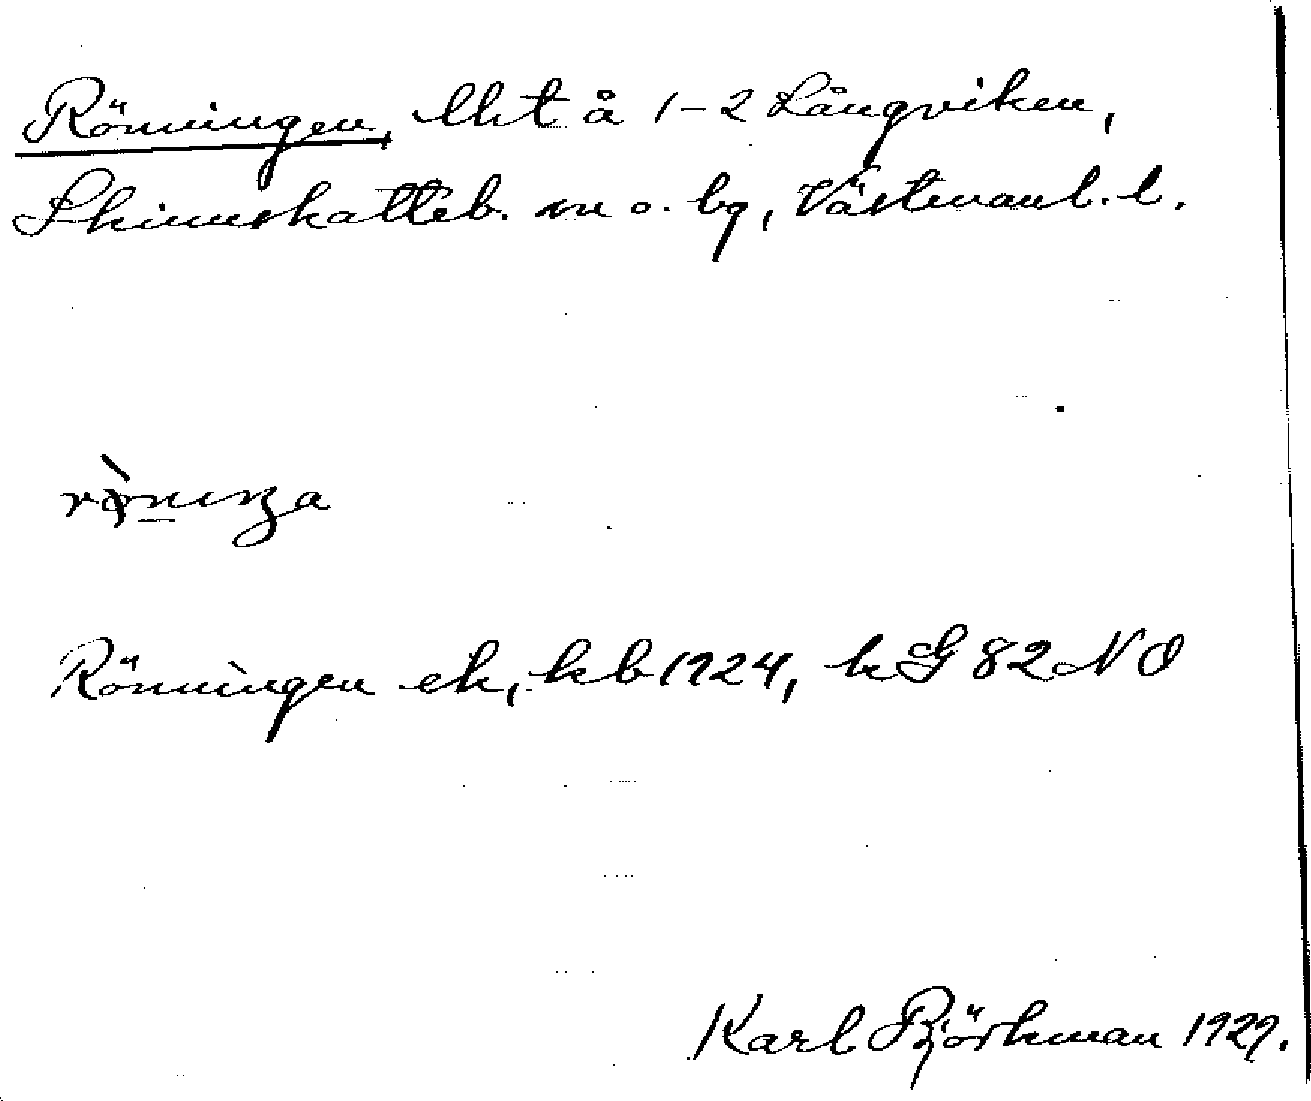 Rönningen, lht å 1-2 Långviken,
Skinnskatteb. sn o. bg, Västmanl. l.
Rönningen ek, kb 1924, k G 82 NO
Karl Björkman 1929.